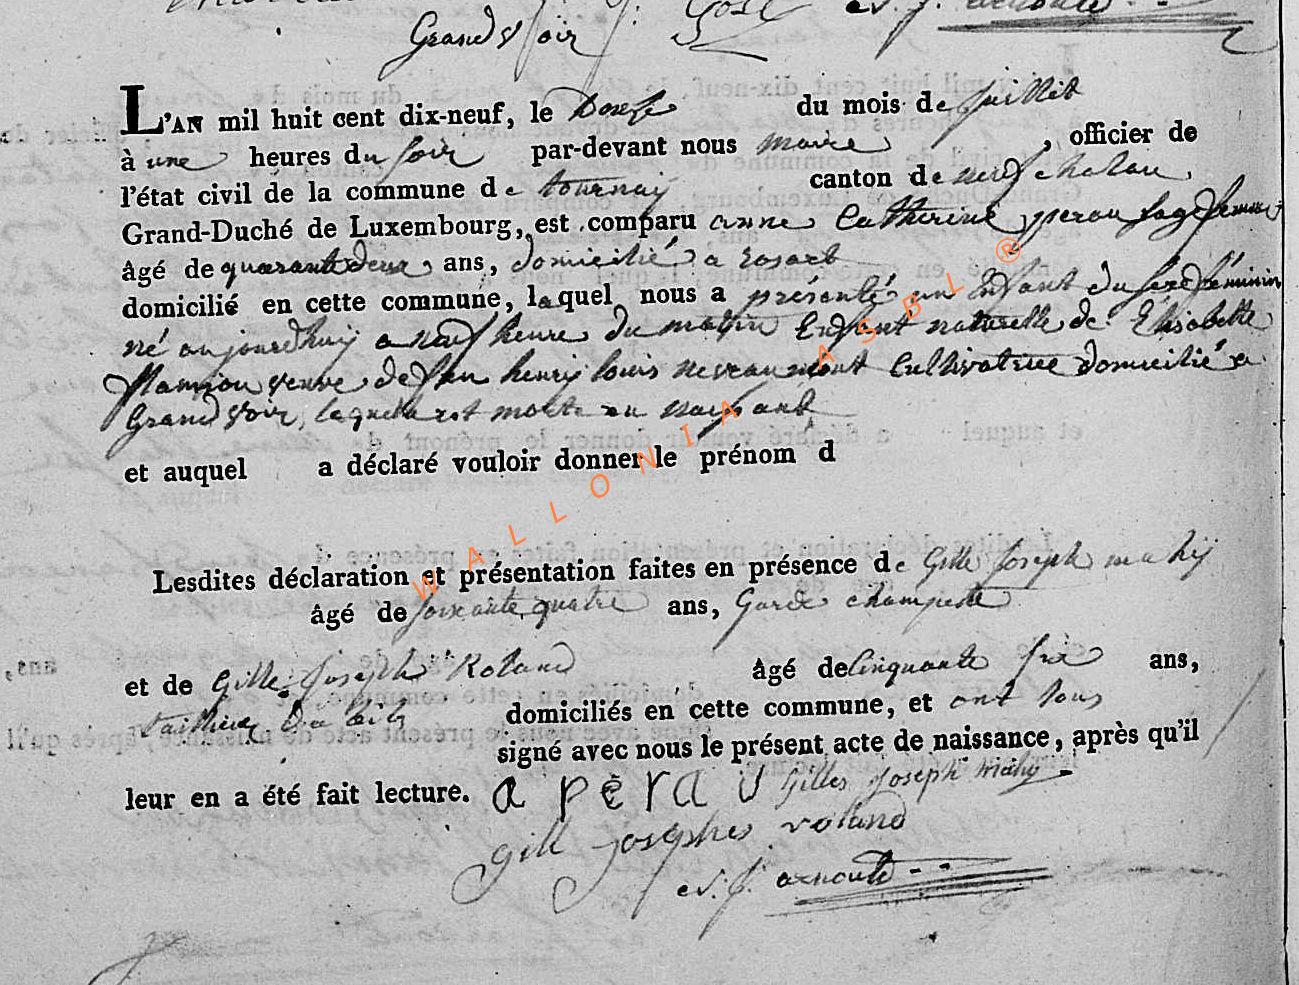 Grandvoir J. Gose
L'AN mil huit cent dix-neuf, le Douse du mois de juillet
à une heures du soir par-devant nous maire , officier de
l'état civil de la commune de tournay canton de neufchatau
Grand-Duché de Luxembourg, est comparu anne Catherine perau sagefemme
âgé de quarante deux ans, domicilié a rosart
domicilié en cette commune, laquel nous a présenté un Enfant du sexe féminin
né aujourdhuy a neuf heure du matin Enfant naturelle de Élisabette
veuve de feu henry louis Cultivatrice domicilié a
Grandvoir, laquele est morte en naissant
et auquel a déclaré vouloir donner le prénom d
Lesdites déclaration et présentation faites en présence de Gille Joseph mahÿ
âgé de soixante quatre ans, Garde champette
et de Gille Joseph Roland âgé de Cinquante six ans,
tailleur domiciliés en cette commune, et ont tous
signé avec nous le présent acte de naissance, après qu'il
leur en a été fait lecture. a pèrau Gilles Joseph mahy
gill josephes roland
J. arnould
WALLONIA ASBL ®